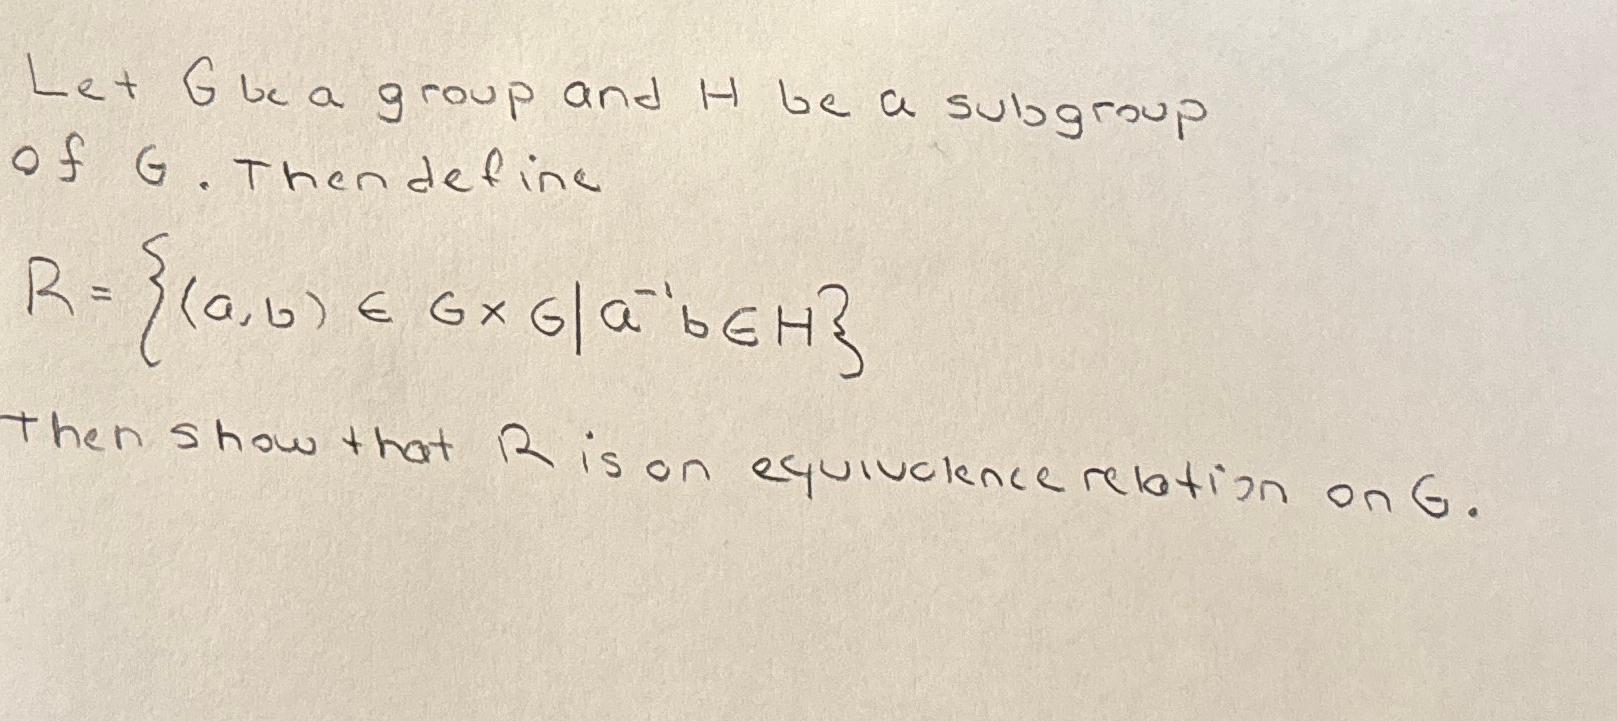 Let G be a group and H be a subgroup
of G. Then define
R = {(a,b) ∈ G × G | a⁻¹b ∈ H}
then show that R is an equivalence relation on G.